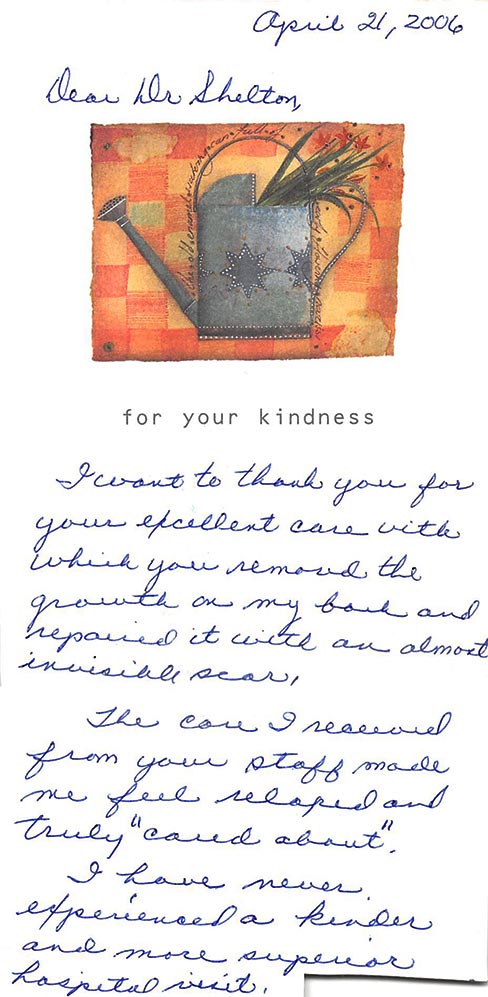 April 21, 2006
Dear Dr Shelton,
for your kindness
I want to thank you for
your excellent care with
which you removed the
growth on my back and
repaired it with an almost
invisible scar.
The care I received
from your staff made
me feel relaxed and
truly "cared about".
I have never
experienced a kinder
and more superior
hospital visit.